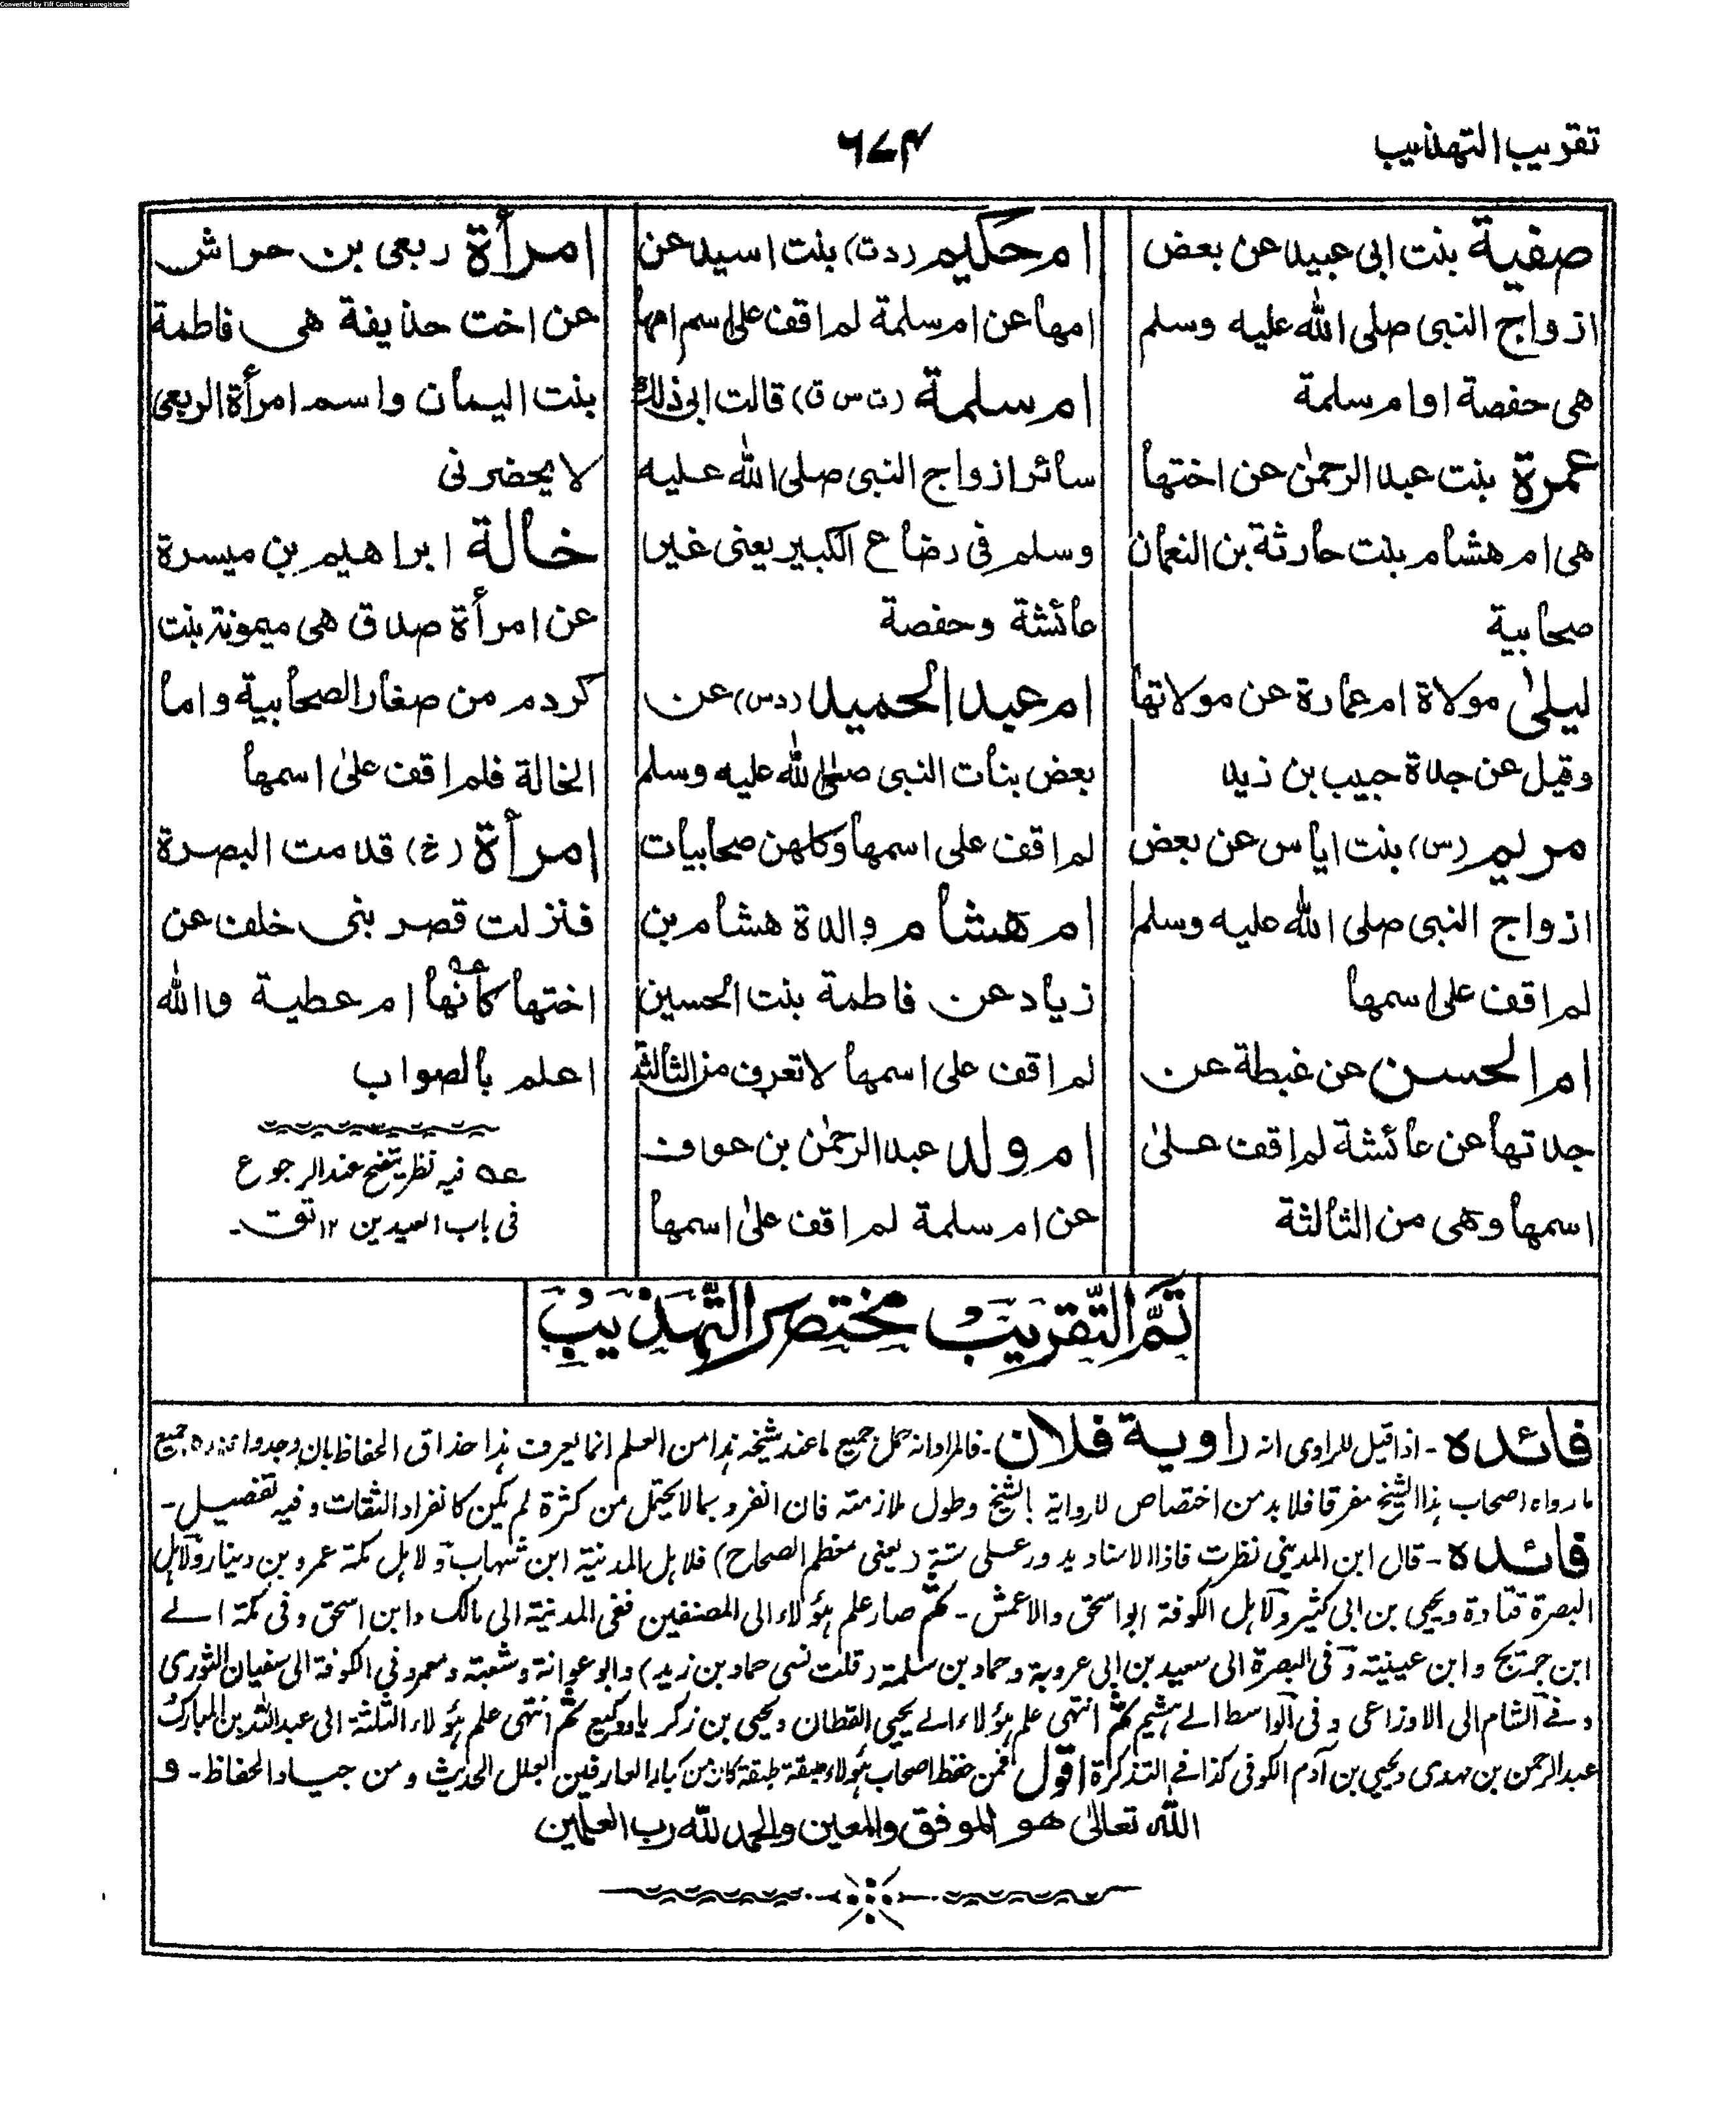 Converted by Tiff Combine - unregistered
تقريب التهذيب
٦٧٤
صفية بنت ابى عبيد عن بعض
ازواج النبى صلى الله عليه وسلم
هى حفصة او ام سلمة
عمرة بنت عبد الرحمٰن عن اختها
هى ام هشام بنت حارثة بن النعمان
صحابية
ليلىٰ مولاة ام عمارة عن مولاتها
وقيل عن جدة حبيب بن زيد
مريم (س) بنت اياس عن بعض
ازواج النبى صلى الله عليه وسلم
لم اقف على اسمها
ام الحسن عن غبطة عن
جدتها عن عائشة لم اقف علىٰ
اسمها وهى من الثالثة
ام حكيم (د ت) بنت اسيد عن
امها عن ام سلمة لم اقف على اسم امها
ام سلمة (ت س ق) قالت ابى ذلك
سائر ازواج النبى صلى الله عليه
وسلم فى رضاع الكبير يعنى غير
عائشة وحفصة
ام عبد الحميد (د س) عن
بعض بنات النبى صلى الله عليه وسلم
لم اقف على اسمها وكلهن صحابيات
ام هشام والدة هشام بن
زياد عن فاطمة بنت الحسين
لم اقف على اسمها لا تعرف من الثالثة
ام ولد عبد الرحمٰن بن عوف
عن ام سلمة لم اقف علىٰ اسمها
امرأة ربعى بن حراش
عن اخت حذيفة هى فاطمة
بنت اليمان واسم امرأة الربعى
لا يحضرنى
خالة ابراهيم بن ميسرة
عن امرأة صدق هى ميمونة بنت
كردم من صغار الصحابية واما
الخالة فلم اقف علىٰ اسمها
امرأة (خ) قدمت البصرة
فنزلت قصر بنى خلف عن
اختها كانها عه ام عطية والله
اعلم بالصواب
عه فيه نظر يتضح عند الرجوع
فى باب العيدين ١٢
تَمَّ التَّقْرِيْبُ مُخْتَصَرُ التَّهْذِيْبِ
فائده - اذا قيل للراوى انه راوية فلان - فالمراد انه حمل جميع ما عند شيخه هذا من العلم انما يعرف هذا حذاق الحفاظ بان وجدوا عنده جميع
ما رواه اصحاب هذا الشيخ مفرقا فلا بد من اختصاص للرواية بالشيخ وطول ملازمته فان انفرد بما لا يحتمل من كثرة لم يكن كانفراد الثقات وفيه تفصيل -
فائده - قال ابن المدينى نظرت فاذا الاسناد يدور على ستة (يعنى معظم الصحاح) فلاهل المدينة ابن شهاب ولاهل مكة عمرو بن دينار ولاهل
البصرة قتادة ويحيى بن ابى كثير ولاهل الكوفة ابو اسحق والاعمش - ثم صار علم هؤلاء الى المصنفين ففى المدينة الى مالك وابن اسحق وفى مكة الے
ابن جريج وابن عيينة وفى البصرة الى سعيد بن ابى عروبة وحماد بن سلمة (قلت نسى حماد بن زيد) وابو عوانة وشعبة ومعمر وفى الكوفة الى سفيان الثورى
وفے الشام الى الاوزاعى وفى الواسط الے هشيم ثم انتهى علم هؤلاء الے يحيى القطان ويحيى بن زكريا ووكيع ثم انتهى علم هؤلاء الثلثة الى عبد الله بن المبارك
عبد الرحمن بن مهدى ويحيى بن آدم الكوفى كذا فے التذكرة اقول فمن حفظ اصحاب هؤلاء طبقة طبقة كان من كبار العارفين لعلل الحديث ومن جياد الحفاظ - و
الله تعالىٰ هو الموفق والمعين والحمد لله رب العلمين